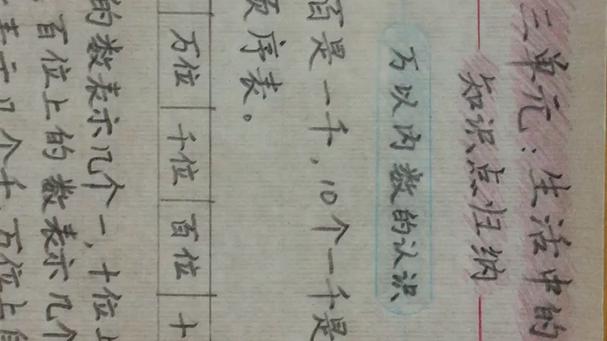 三单元：生活中的
知识点归纳
万以内数的认识
百是一千，10个一千是
顺序表。
万位 千位 百位 十
的数表示几个一，十位上
百位上的数表示几个
表示几个千，万位上的